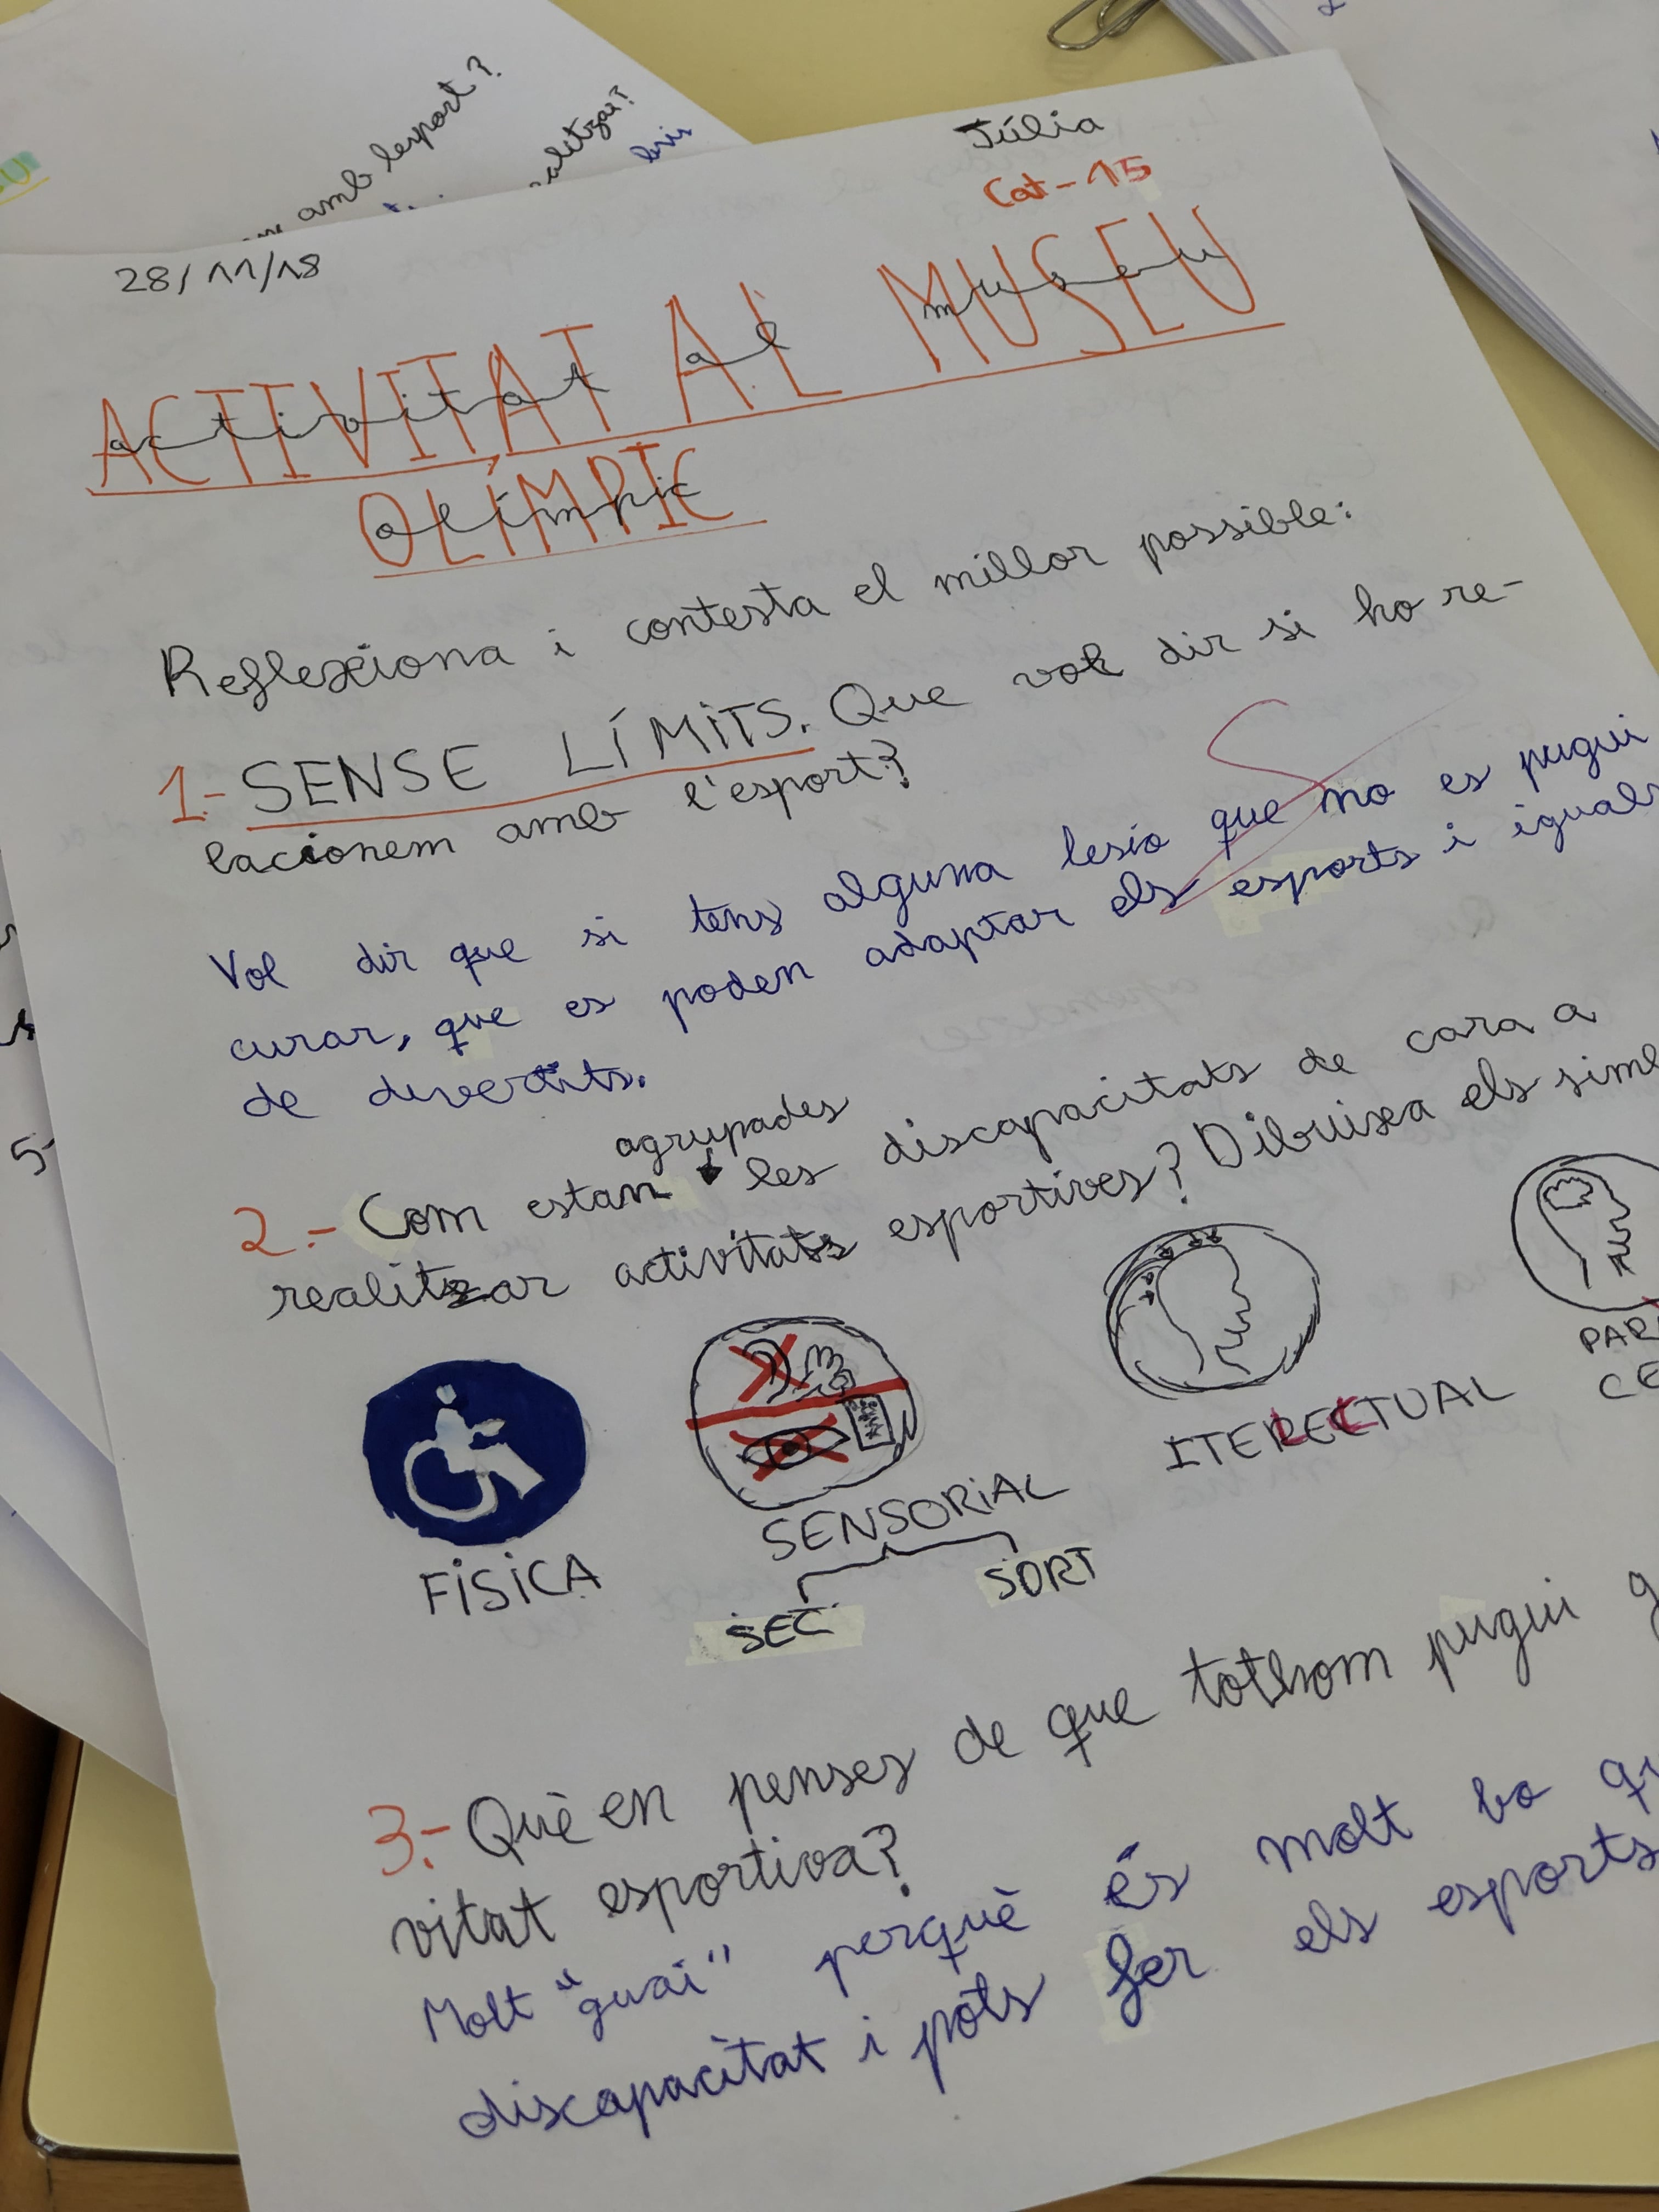 amb lesport?
alitzar?
Júlia
Cat-15
28/11/18
ACTIVITAT AL MUSEU
activitat al museu
OLÍMPIC
olímpic
Reflexiona i contesta el millor possible:
1.- SENSE LÍMITS. Que vol dir si ho re-
lacionem amb l'esport?
Vol dir que si tens alguna lesio que no es pugui
curar, que es poden adaptar els esports i igual
de divertits.
agrupades
2.- Com estan les discapacitats de cara a
realitzar activitats esportives? Dibuixa els
FÍSICA
SENSORIAL
SEC
SORT
ITELECTUAL
3.- Què en penses de que tothom pugui
vitat esportiva?
Molt "guai" perquè és molt bo
discapacitat i pots fer els esports
5-